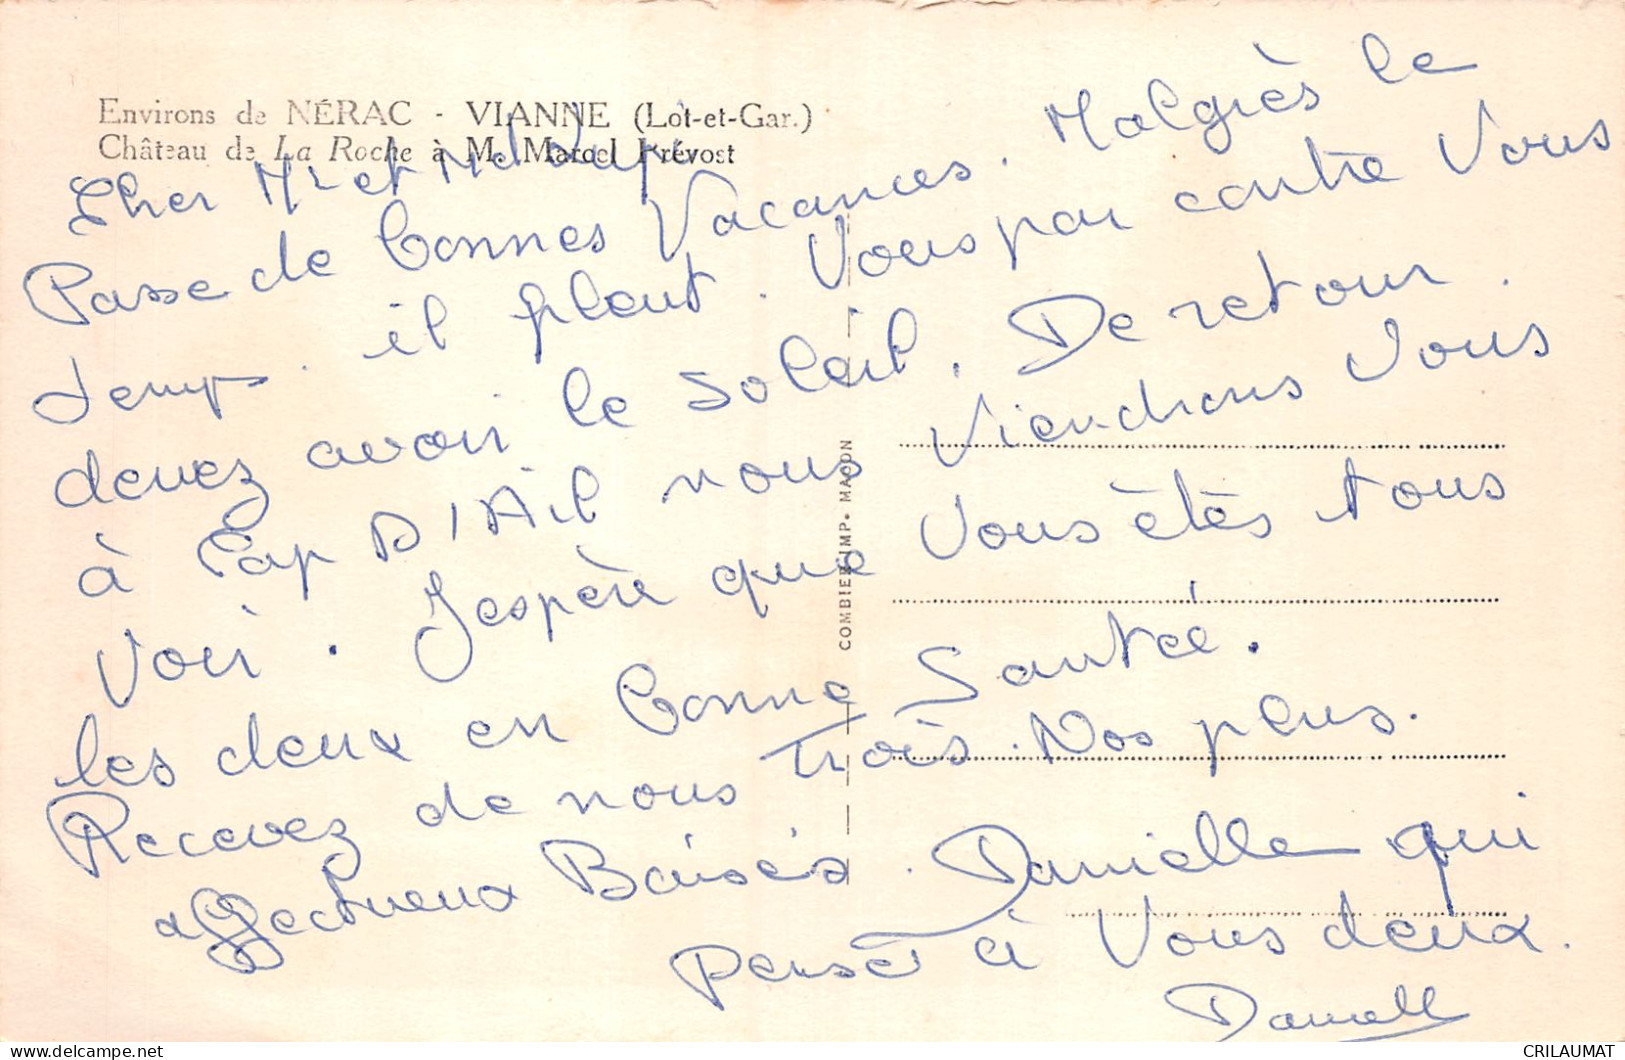 Environs de NÉRAC - VIANNE (Lot-et-Gar.)
Château de La Roche à M. Marcel Prévost
Cher Mr et Md
Passe de Bonnes Vacances. Malgrès le
temps. il pleut. Vous par contre Vous
devez avoir le soleil. De retour.
à Cap D'Ail nous Viendrons Vous
Voir. J'espère que Vous êtès tous
les deux en Bonne Santéé.
Recevez de nous Trois. Nos plus.
affectueux Baisés. Danielle qui
Penset à Vous deux.
Danielle
COMBIER IMP. MACON
CRILAUMAT